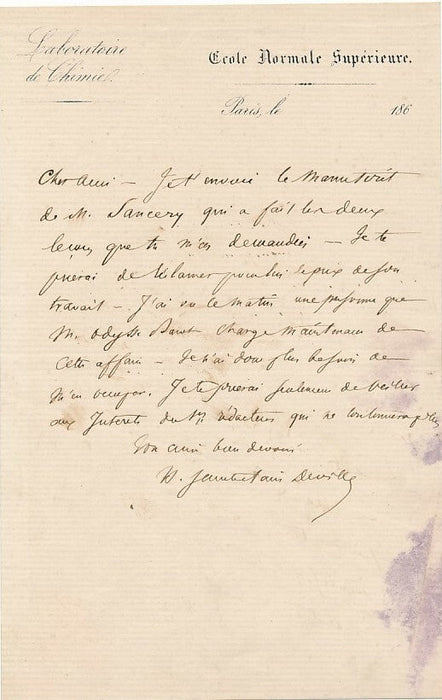 Laboratoire
de Chimie.
Ecole Normale Supérieure.
Paris, le 186
Cher ami – Je t'envoie le manuscrit
de M. Sancery qui a fait les deux
leçons que tu m'as demandées – Je te
prierai de réclamer pour lui le prix de son
travail – J'ai vu ce matin une personne que
M. Odysse Barot charge maintenant de
cette affaire – Je n'ai donc plus besoin de
m'en occuper. Je te prierai seulement de veiller
aux Intérets du rédacteur qui ne continuera plus
Ton ami bien dévoué
H. Sainte Claire Deville